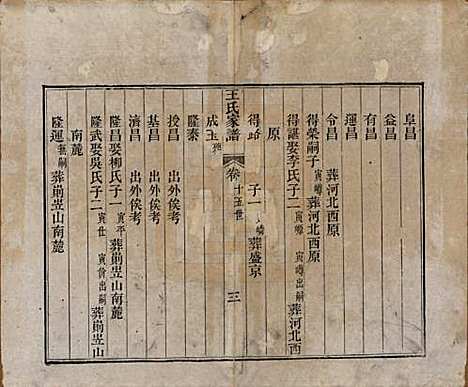 阜昌
有昌
益昌
運昌
令昌 葬河北西原
得榮嗣子 寅嶟 葬河北西原
得諶娶李氏子二 寅嶟 寅嶟出嗣 葬河北西
原
得路 子一 葬盛京
王氏家譜 卷 十五世 三
成玉
隆泰
授昌 出外俟考
基昌 出外俟考
濟昌 出外俟考
隆昌娶柳氏子一 寅平 葬崩岦山南麓
隆武娶吳氏子二 寅世 寅前出嗣 葬崩岦山
南麓
隆運 無嗣 葬崩岦山南麓